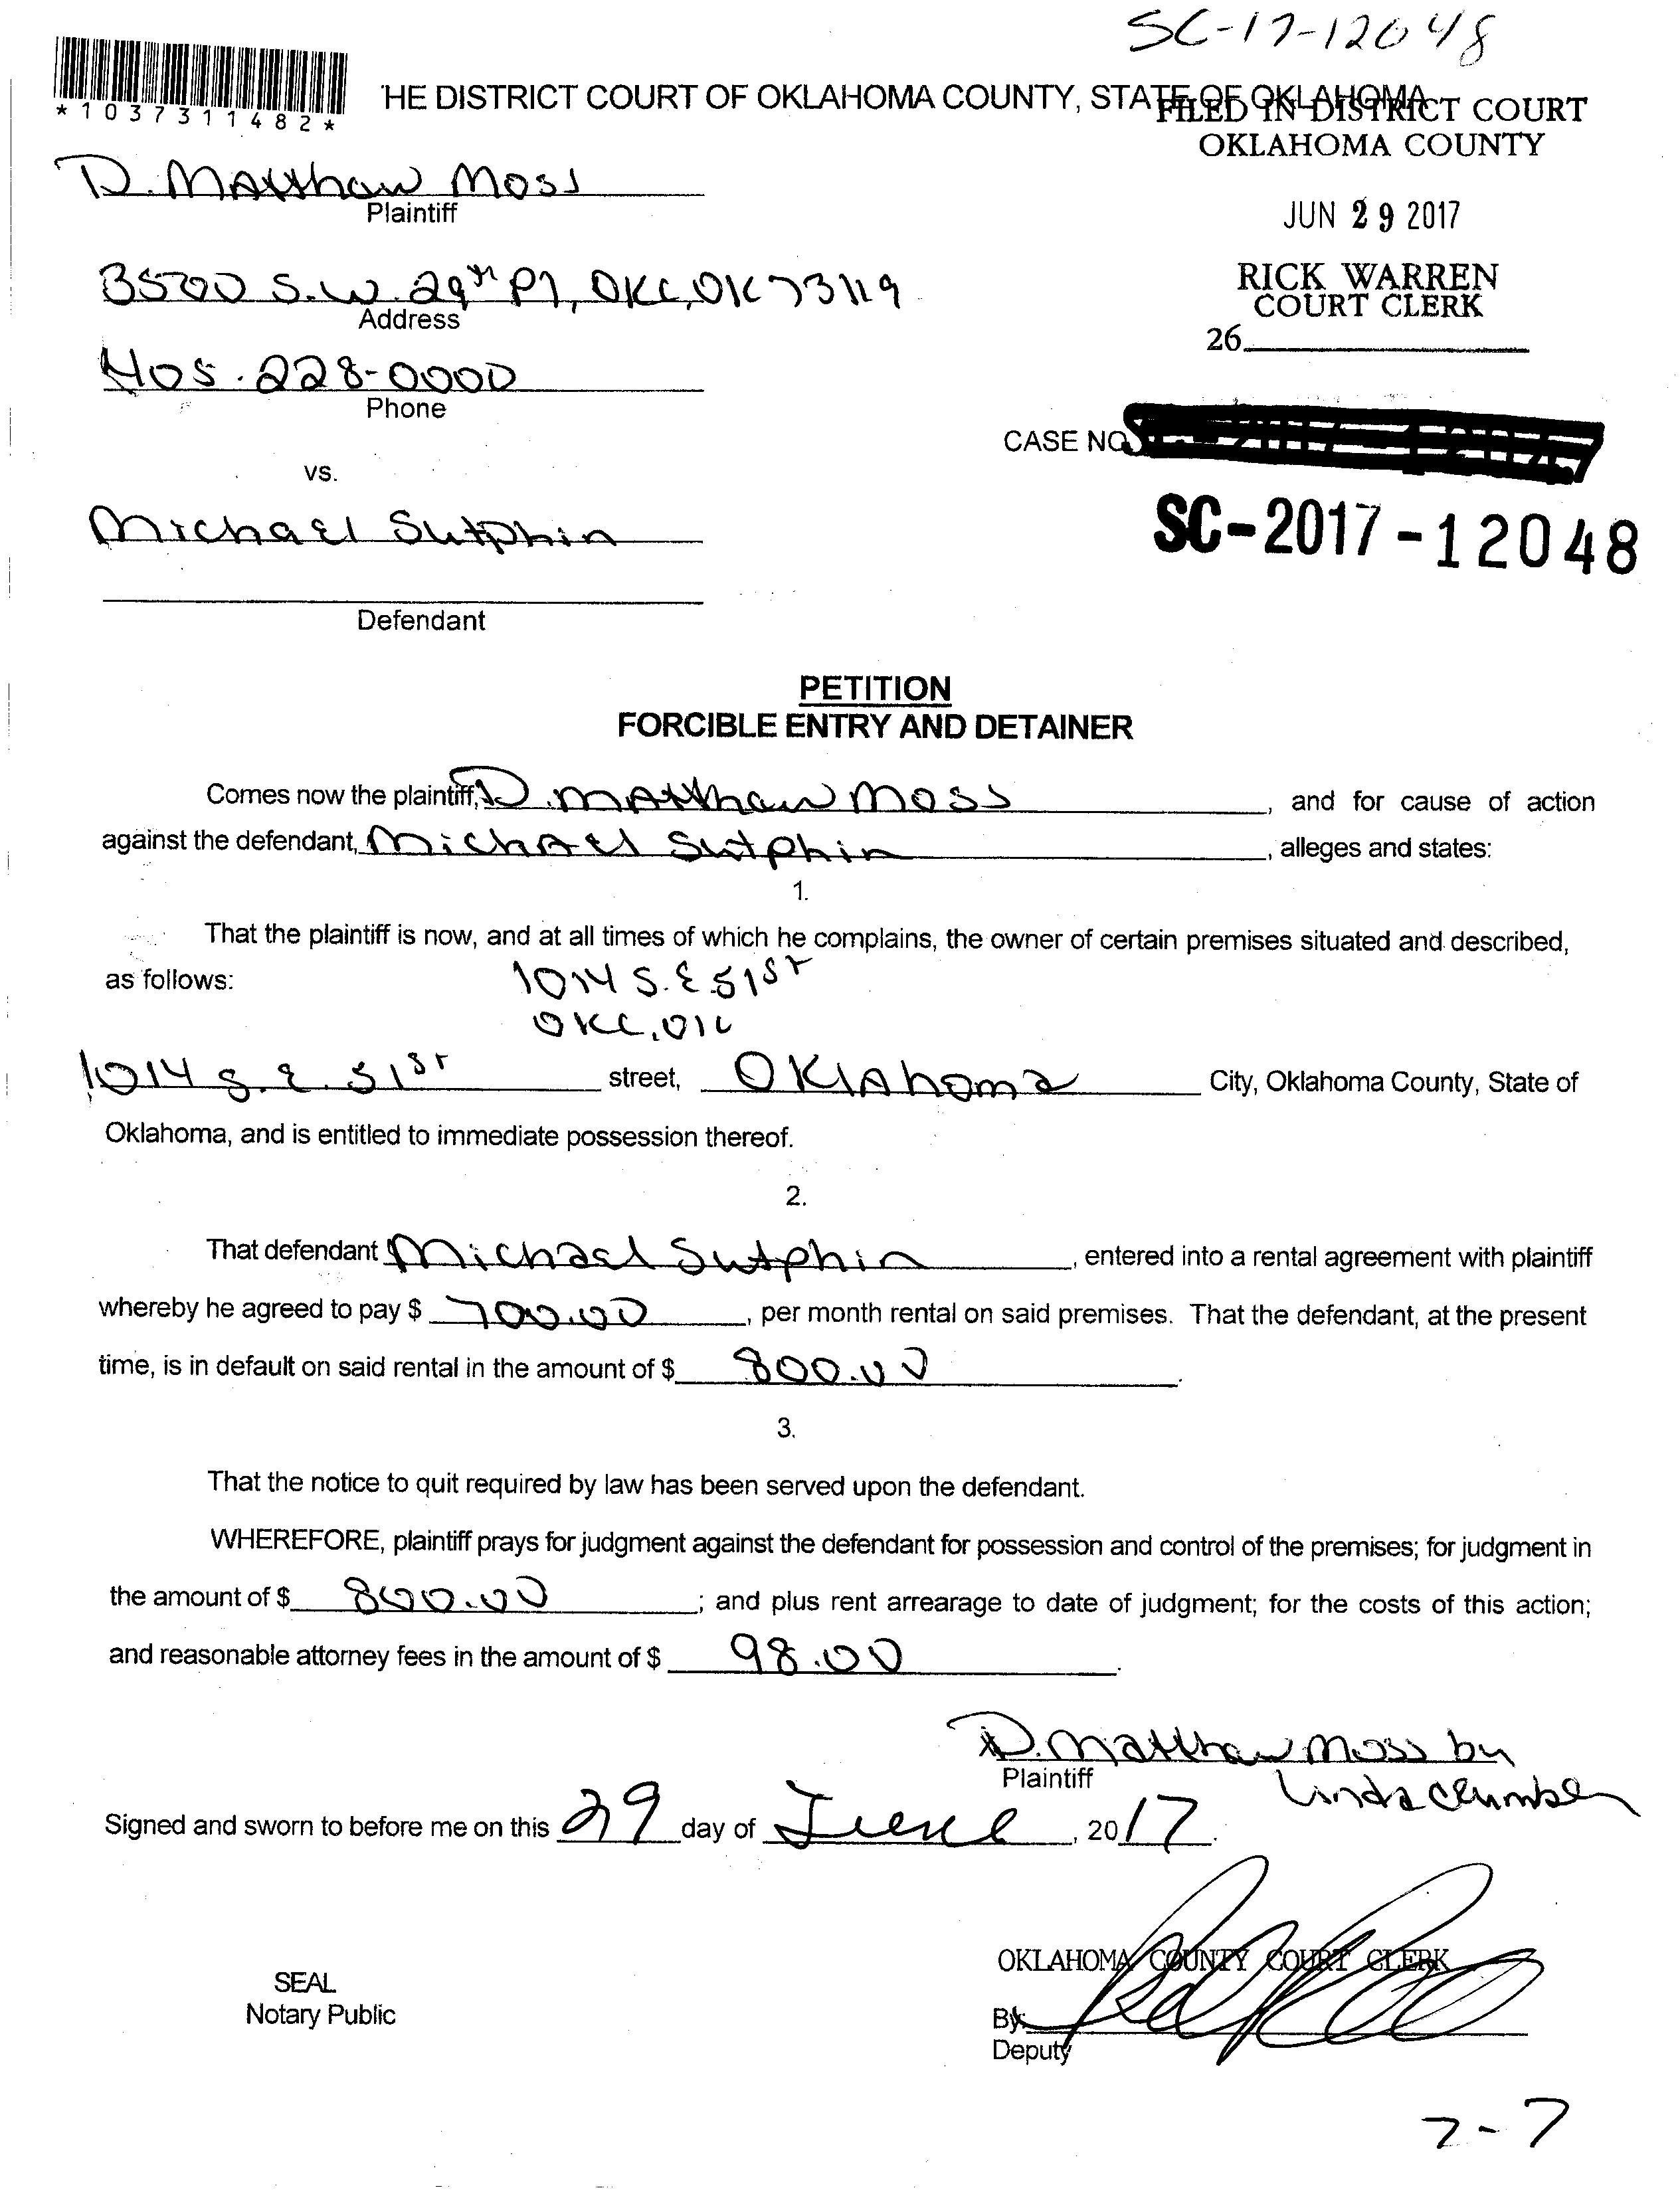 SC-17-12048
*1037311482*
HE DISTRICT COURT OF OKLAHOMA COUNTY, STATE OF OKLAHOMA
FILED IN DISTRICT COURT
OKLAHOMA COUNTY
D. Matthew Moss
Plaintiff
JUN 29 2017
3500 S.W. 29th Pl, OKC, OK 73119
Address
RICK WARREN
COURT CLERK
26
405.228-0000
Phone
CASE NO.
vs.
Michael Sutphin
SC-2017-12048
Defendant
PETITION
FORCIBLE ENTRY AND DETAINER
Comes now the plaintiff, D. Matthew Moss, and for cause of action
against the defendant, Michael Sutphin, alleges and states:
1.
That the plaintiff is now, and at all times of which he complains, the owner of certain premises situated and described,
as follows: 1014 S.E 51st
OKC, OK
1014 S.E. 51st street, Oklahoma City, Oklahoma County, State of
Oklahoma, and is entitled to immediate possession thereof.
2.
That defendant Michael Sutphin, entered into a rental agreement with plaintiff
whereby he agreed to pay $ 700.00, per month rental on said premises. That the defendant, at the present
time, is in default on said rental in the amount of $ 800.00.
3.
That the notice to quit required by law has been served upon the defendant.
WHEREFORE, plaintiff prays for judgment against the defendant for possession and control of the premises; for judgment in
the amount of $ 800.00; and plus rent arrearage to date of judgment; for the costs of this action;
and reasonable attorney fees in the amount of $ 98.00.
D. Matthew Moss by
Plaintiff
Linda
Signed and sworn to before me on this 29 day of June, 2017.
OKLAHOMA COUNTY COURT CLERK
SEAL
Notary Public
By:
Deputy
7-7